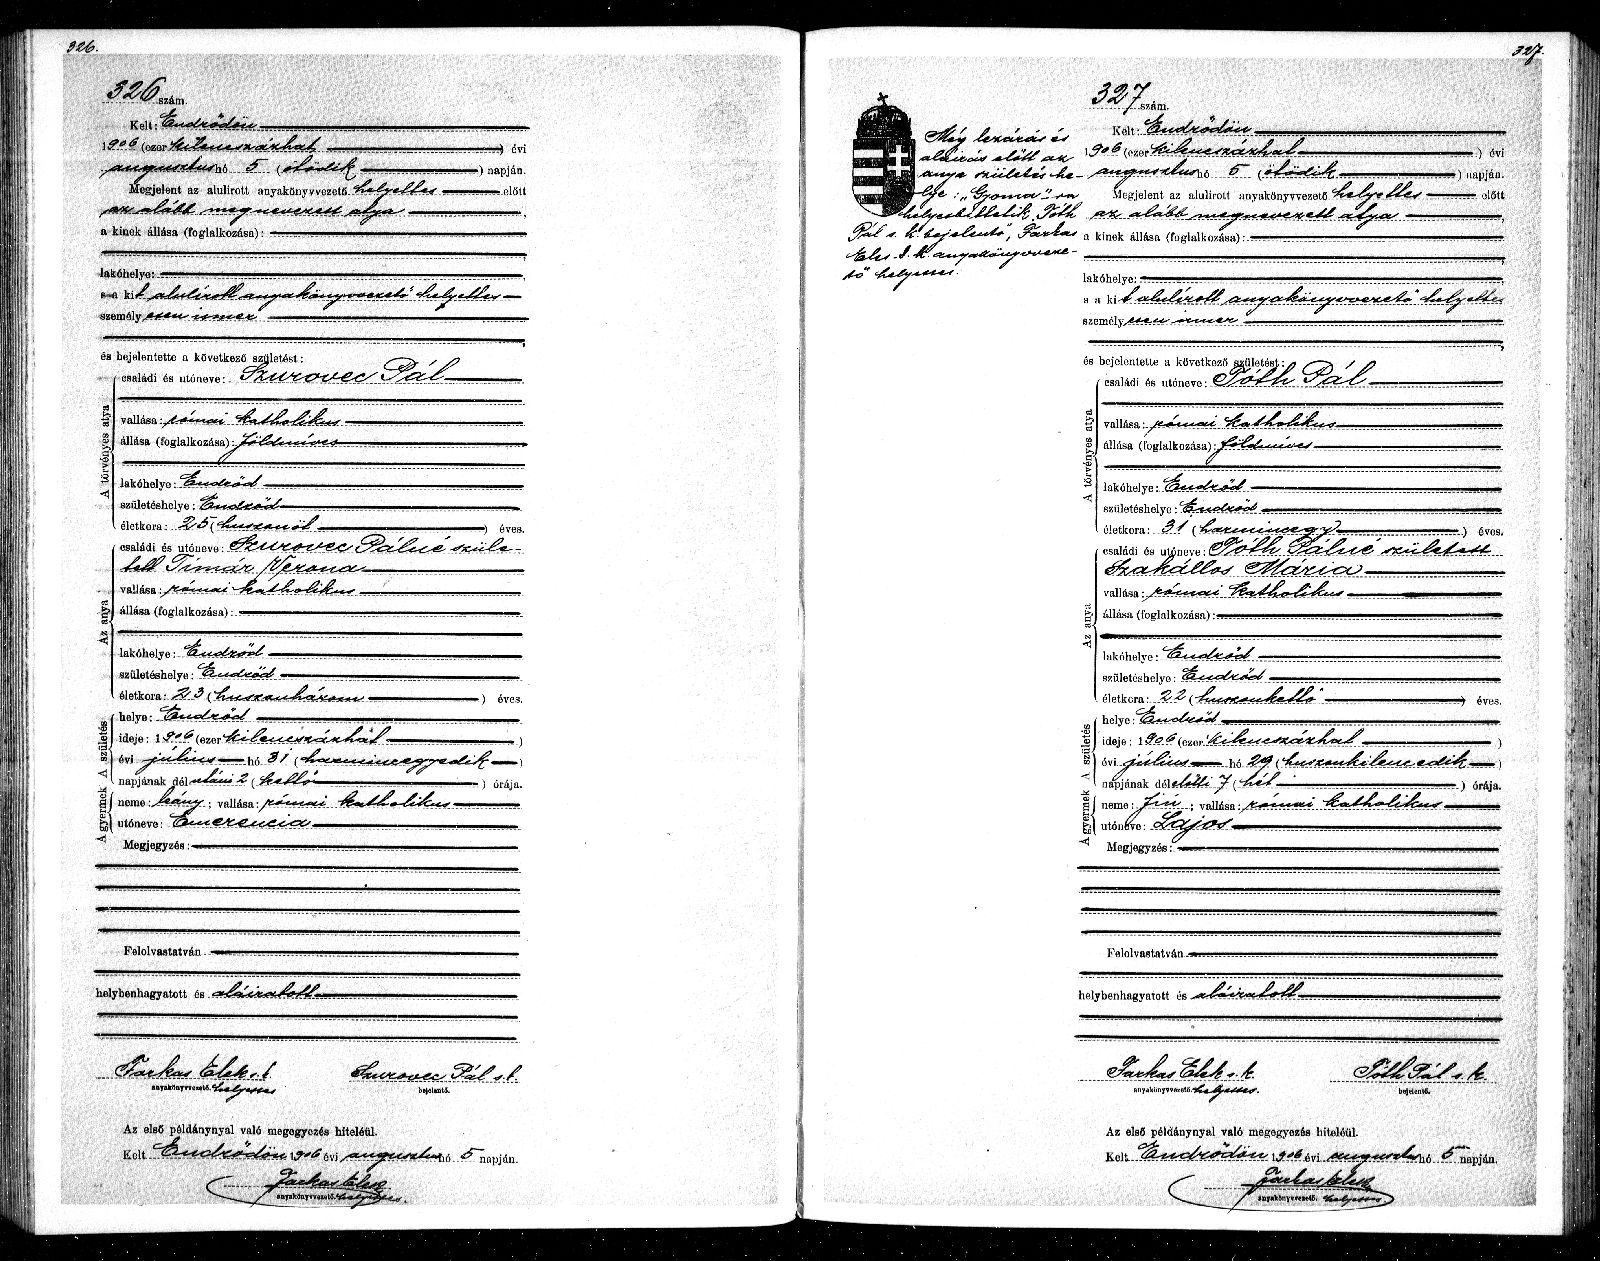 326.
326 szám.
Kelt: Endrődön
1906 (ezer kilencszázhat ) évi
augusztus hó 5 (ötödik ) napján.
Megjelent az alulirott anyakönyvvezető helyettes előtt
az alább megnevezett atya
a kinek állása (foglalkozása):
lakóhelye:
s a kit alulírott anyakönyvvezető helyettes
személyesen ismer
és bejelentette a következő születést:
A törvényes atya
családi és utóneve: Szurovec Pál
vallása: római katholikus
állása (foglalkozása): földmíves
lakóhelye: Endrőd
születéshelye: Endrőd
életkora: 25 (huszonöt ) éves.
Az anya
családi és utóneve: Szurovec Pálné szüle-
tett Tímár Verona
vallása: római katholikus
állása (foglalkozása):
lakóhelye: Endrőd
születéshelye: Endrőd
életkora: 23 (huszonhárom ) éves.
A születés
helye: Endrőd
ideje: 1906 (ezer kilencszázhat )
évi július hó 31 (harmincegyedik )
napjának dél utáni 2 (kettő ) órája.
A gyermek
neme: leány; vallása: római katholikus
utóneve: Emerencia
Megjegyzés:
Felolvastatván
helybenhagyatott és aláiratott
Farkas Elek s. k. Szurovec Pál s. k.
anyakönyvvezető helyettes bejelentő.
Az első példánynyal való megegyezés hiteléül.
Kelt Endrődön 1906 évi augusztus hó 5 napján.
Farkas Elek
anyakönyvvezető helyettes.
327.
Még lezárás és
aláírás előtt az
anya születés he-
lye: „Gyoma"-ra
helyesbíttetik. Tóth
Pál s. k. bejelentő, Farkas
Elek s. k. anyakönyvveze-
tő helyettes.
327 szám.
Kelt: Endrődön
1906 (ezer kilencszázhat ) évi
augusztus hó 5 (ötödik ) napján.
Megjelent az alulirott anyakönyvvezető helyettes előtt
az alább megnevezett atya
a kinek állása (foglalkozása):
lakóhelye:
s a kit alulírott anyakönyvvezető helyettes
személyesen ismer
és bejelentette a következő születést:
A törvényes atya
családi és utóneve: Tóth Pál
vallása: római katholikus
állása (foglalkozása): földmíves
lakóhelye: Endrőd
születéshelye: Endrőd
életkora: 31 (harmincegy ) éves.
Az anya
családi és utóneve: Tóth Pálné született
Szakállos Mária
vallása: római katholikus
állása (foglalkozása):
lakóhelye: Endrőd
születéshelye: Endrőd
életkora: 22 (huszonkettő ) éves.
A születés
helye: Endrőd
ideje: 1906 (ezer kilencszázhat )
évi július hó 29 (huszonkilencedik )
napjának dél előtti 7 (hét ) órája.
A gyermek
neme: fiu; vallása: római katholikus
utóneve: Lajos
Megjegyzés:
Felolvastatván
helybenhagyatott és aláiratott
Farkas Elek s. k. Tóth Pál s. k.
anyakönyvvezető helyettes. bejelentő.
Az első példánynyal való megegyezés hiteléül.
Kelt Endrődön 1906 évi augusztus hó 5 napján.
Farkas Elek
anyakönyvvezető. helyettes